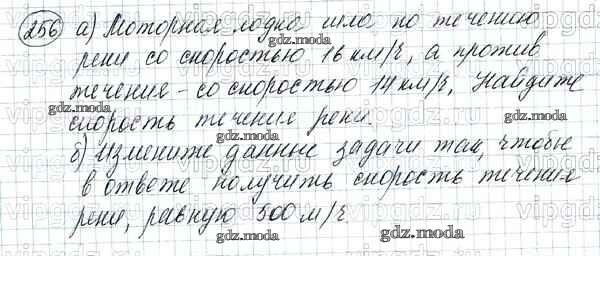 256 а) Моторная лодка шла по течению
реки со скоростью 16 км/ч, а против
течения - со скоростью 14 км/ч. Найдите
скорость течения реки.
б) Измените данные задачи так, чтобы
в ответе получить скорость течения
реки, равную 500 м/ч.
gdz.moda
gdz.moda
gdz.moda
gdz.moda
gdz.moda
gdz.moda
gdz.moda
gdz.moda